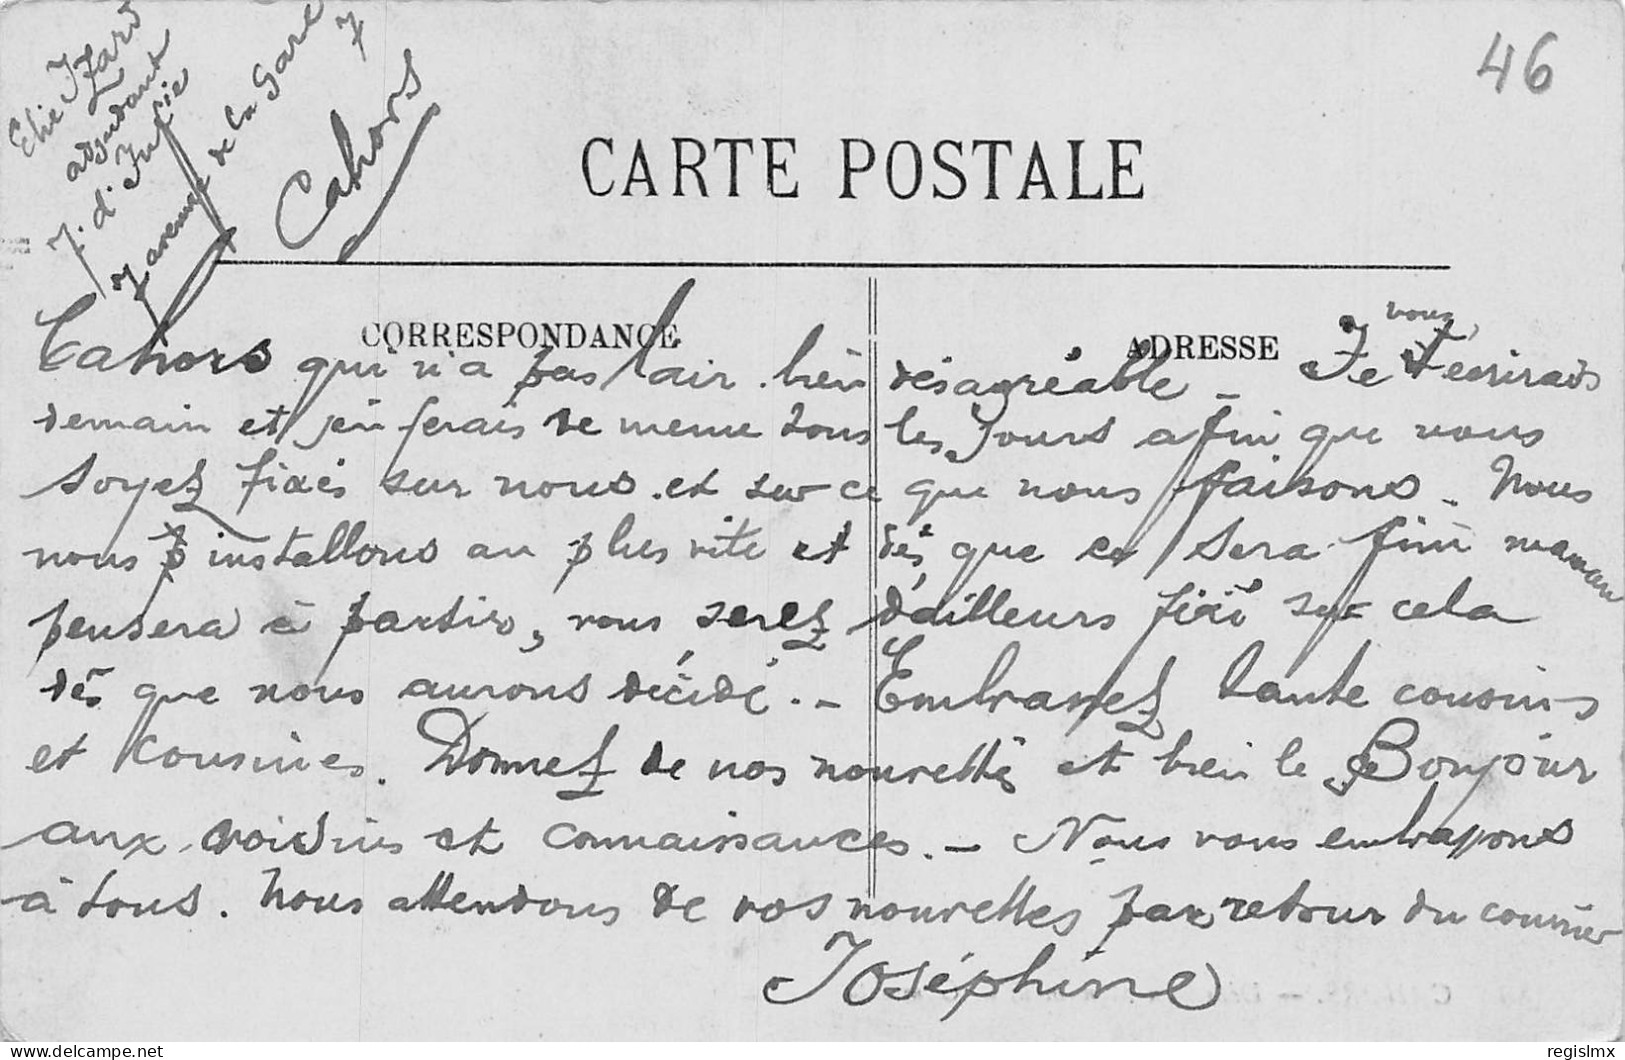 Elie Izard
adjudant
7. d'Inf.ie
7 avenue de la Gare 7
Cahors
46
CARTE POSTALE
CORRESPONDANCE
ADRESSE
vous
Cahors qui n'a pas l'air bien désagréable - Je t'écrirais
demain et j'en ferais de meme tous les Jours afin que vous
soyez fixés sur nous et sur ce que nous faisons. Nous
nous installons au plus vite et dès que ce sera fini maman
pensera à partir, vous serez d'ailleurs fixé sur cela
dès que nous aurons décidé. - Embrassez tante cousins
et cousines. Donnez de nos nouvelles et bien le Bonjour
aux voisins et connaissances. - Nous vous embrassons
à tous. Nous attendons de vos nouvelles par retour du courrier
Joséphine
regislmx